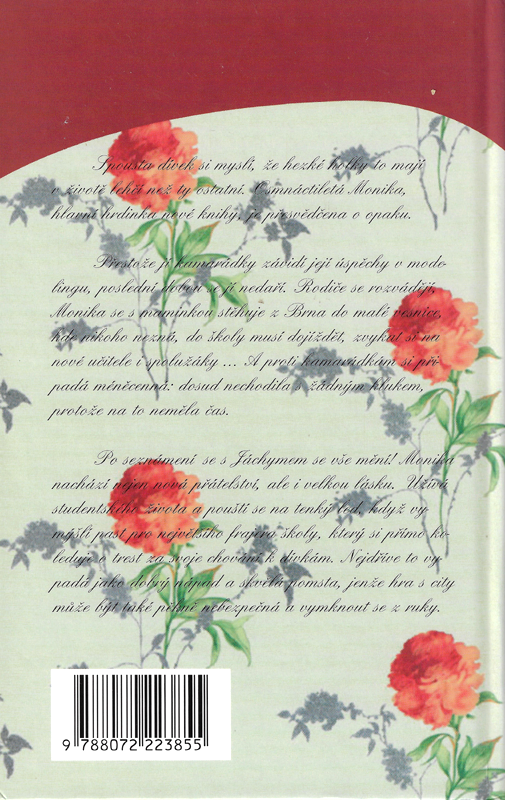 Spousta dívek si myslí, že hezké holky to mají
v životě lehčí než ty ostatní. Osmnáctiletá Monika,
hlavní hrdinka nové knihy, je přesvědčena o opaku.
Přestože jí kamarádky závidí její úspěchy v mode-
lingu, poslední dobou se jí nedaří. Rodiče se rozvádějí,
Monika se s maminkou stěhuje z Brna do malé vesnice,
kde nikoho nezná, do školy musí dojíždět, zvykat si na
nové učitele i spolužáky ... A proti kamarádkám si při-
padá méněcenná: dosud nechodila s žádným klukem,
protože na to neměla čas.
Po seznámení se s Jáchymem se vše mění! Monika
nachází nejen nová přátelství, ale i velkou lásku. Užívá
studentského života a pouští se na tenký led, když vy-
mýšlí past pro největšího frajera školy, který si přímo ko-
leduje o trest za svoje chování k dívkám. Nejdříve to vy-
padá jako dobrý nápad a skvělá pomsta, jenže hra s city
může být také pěkně nebezpečná a vymknout se z ruky.
9 788072 223855